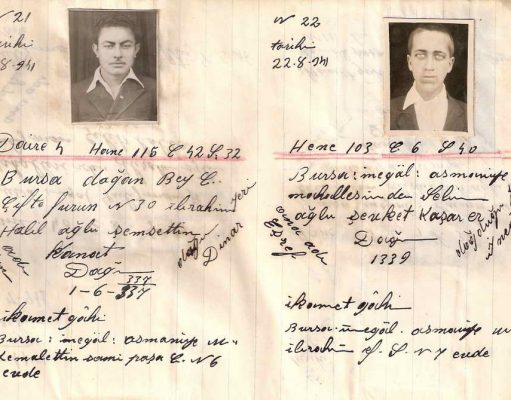 N 21
tarihi
22.8.941
Daire 4 Hane 115 C 42 S. 32
Bursa doğan Bey C.
Çifte furun N 30 ibrahim
Halil oğlu şemsettin
Kanat
Doğu
337
1-6-337
yeri
Dinar
ana adı
ikamet gâhi
Bursa: megâl: asmaniye M..
Kemalettin sami paşa C. N 6
evde
N 22
tarihi
22.8.941
Hane 103 C 6 S 40
Bursa: megâl: asmaniye
mahallesinden Selim
oğlu şevket Kaşar er
Doğu
1339
ana adı
Eşref
doğduğu
ikamet gâhi
Bursa megâl: asmaniye M
ibrahim ef. S. N 7 evde